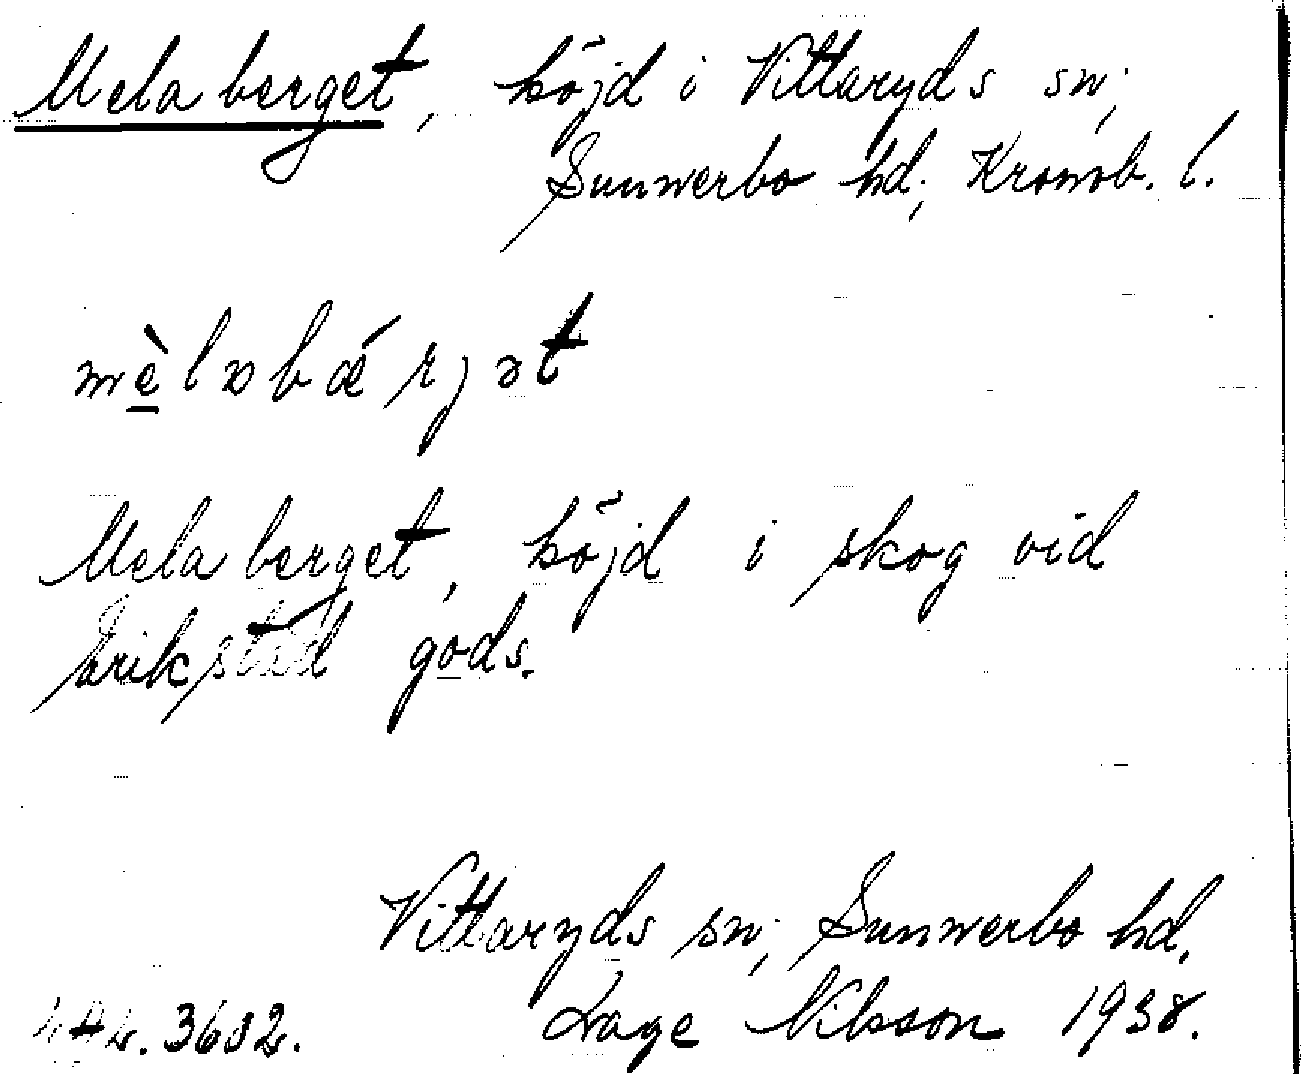 Melaberget, höjd i Vittaryds sn;
Sunnerbo hd; Kronob. l.
mèlɒbǽrjət
Melaberget, höjd i skog vid
Erikstad gods.
Vittaryds sn; Sunnerbo hd.
3632. Lage Nilsson 1938.